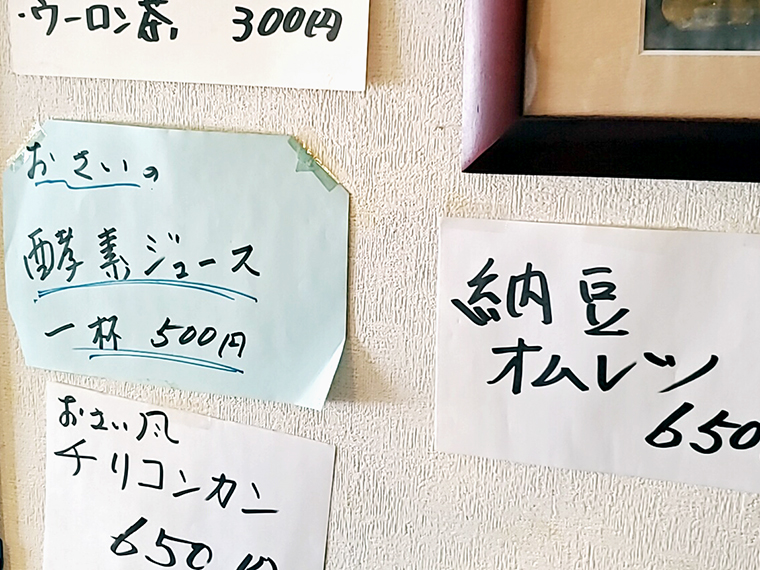 ・ウーロン茶 300円
おさいの
酵素ジュース
一杯 500円
おさい風
チリコンカン
650円
納豆
オムレツ
650